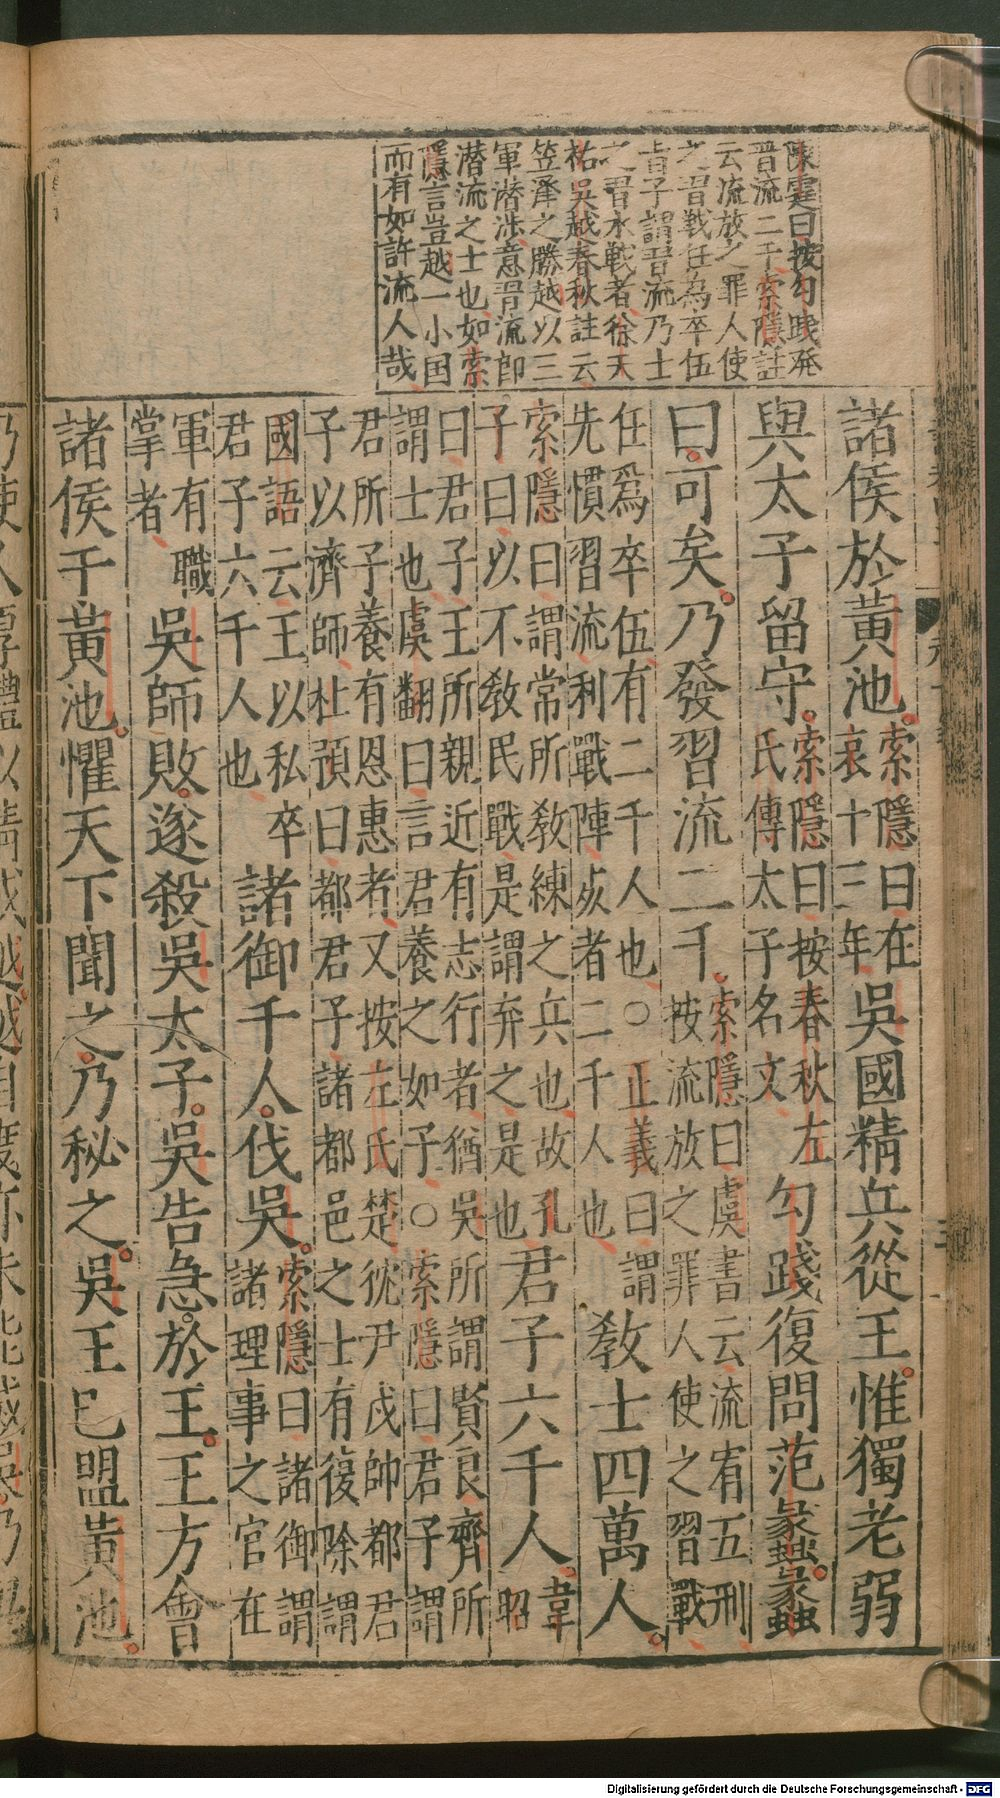 陳霆曰按勾踐発
習流二千索隱註
云流放之罪人使
之習戰任為卒伍
肯子謂習流乃士
之習水戰者徐天
祐吳越春秋註云
笠澤之勝越以三
軍潜渉意習流即
潜流之士也如索
隱言豈越一小国
而有如許流人哉
諸侯於黃池。索隱曰在哀十三年吳國精兵從王。惟獨老弱
與太子留守。索隱曰按春秋左氏傳太子名文勾踐復問范蠡。蠡
曰。可矣。乃發習流二千。索隱曰虞書云流宥五刑按流放之罪人使之習戰
任爲卒伍有二千人也○正義曰謂先慣習流利戰陣死者二千人也教士四萬人。
索隱曰謂常所敎練之兵也故孔子曰以不敎民戰是謂弃之是也君子六千人。韋昭
曰君子王所親近有志行者猶吳所謂賢良齊所謂士也虞翻曰言君養之如子○索隱曰君子謂
君所子養有恩惠者又按左氏楚沈尹戌帥都君子以濟師杜預曰都君子諸都邑之士有復除謂
國語云王以私卒君子六千人也諸御千人。伐吳。索隱曰諸御謂諸理事之官在
軍有職掌者吳師敗。遂殺吳太子。吳告急。於王。王方會
諸侯于黃池。懼天下聞之。乃秘之。吳王已盟黃池。
Digitalisierung gefördert durch die Deutsche Forschungsgemeinschaft - DFG